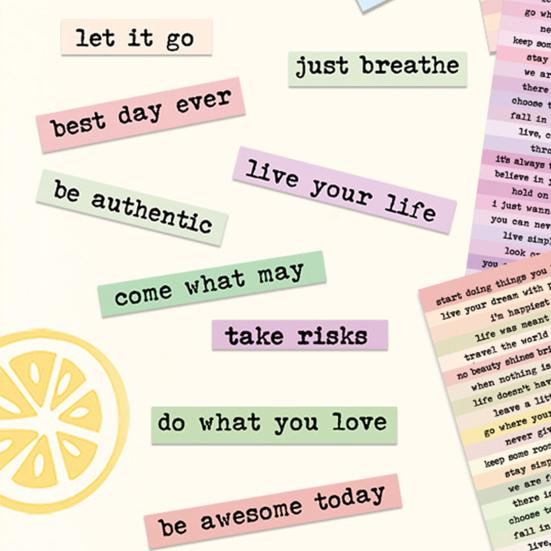 let it go
just breathe
best day ever
live your life
be authentic
come what may
take risks
do what you love
be awesome today
go wh
ne
keep som
stay
we ar
there
choose t
fall in
live, c
thro
it's always t
believe in y
hold on
i just wann
you can nev
live simpl
look o
you
start doing things you
live your dream with p
i'm happiest
life was meant
travel the world
no beauty shines bri
when nothing is
life doesn't hav
leave a litt
go where your
never giv
keep some room
stay simp
we are f
there i
choose to
fall in
live,